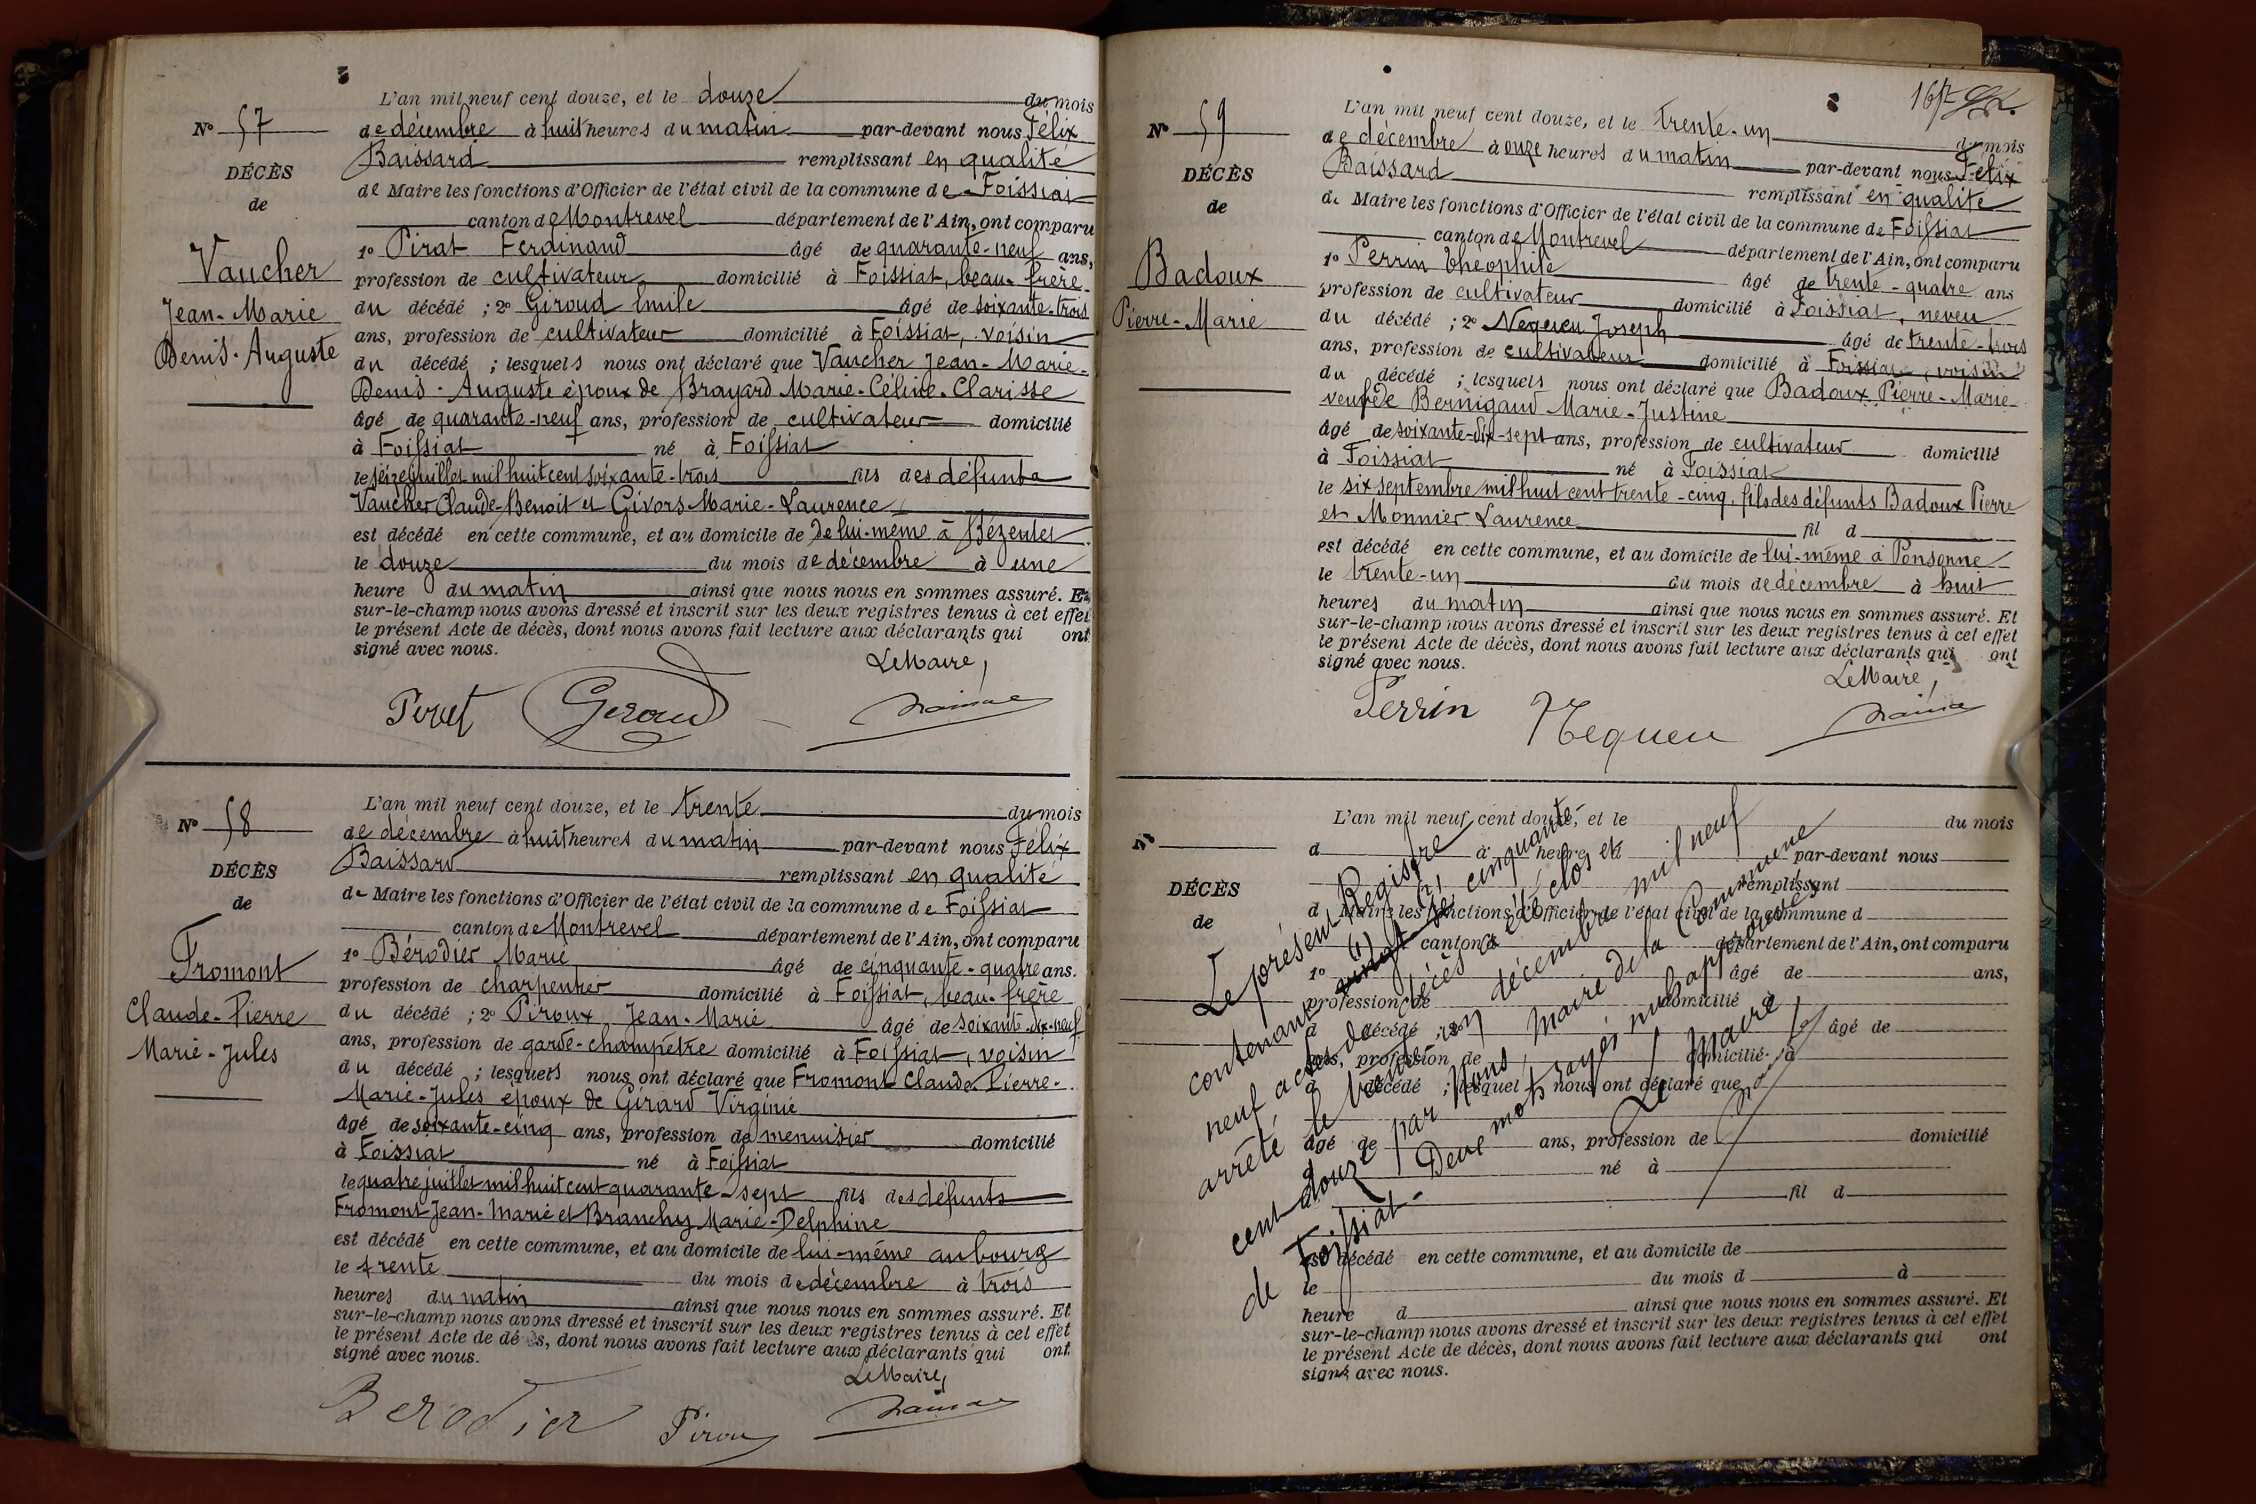 L'an mil neuf cent douze, et le douze du mois
N° 57
de décembre à huit heures du matin par-devant nous Félix
Baissard remplissant en qualité
DÉCÈS
de Maire les fonctions d'Officier de l'état civil de la commune de Foissiat
de
canton de Montrevel département de l'Ain, ont comparu
1° Pirat Ferdinand âgé de quarante-neuf ans,
Vaucher
profession de cultivateur domicilié à Foissiat, beau-frère
Jean-Marie
du décédé ; 2° Giroud Emile âgé de soixante-trois
ans, profession de cultivateur domicilié à Foissiat, voisin
Denis-Auguste
du décédé ; lesquels nous ont déclaré que Vaucher Jean-Marie-
Denis-Auguste époux de Brayard Marie-Céline-Clarisse
âgé de quarante-neuf ans, profession de cultivateur domicilié
à Foissiat né à Foissiat
le seize juillet mil huit cent soixante-trois fils des défunts
Vaucher Claude-Benoit et Givors Marie-Laurence
est décédé en cette commune, et au domicile de de lui-même à Bézentet
le douze du mois de décembre à une
heure du matin ainsi que nous nous en sommes assuré. Et
sur-le-champ nous avons dressé et inscrit sur les deux registres tenus à cet effet
le présent Acte de décès, dont nous avons fait lecture aux déclarants qui ont
signé avec nous.
Le Maire,
Giroud
L'an mil neuf cent douze, et le trente du mois
N° 58
de décembre à huit heures du matin par-devant nous Félix
Baissard remplissant en qualité
DÉCÈS
de Maire les fonctions d'Officier de l'état civil de la commune de Foissiat
de
canton de Montrevel département de l'Ain, ont comparu
1° Bérodier Marie âgé de cinquante-quatre ans.
Fromont
profession de charpentier domicilié à Foissiat, beau-frère
Claude-Pierre
du décédé ; 2° Piroux Jean-Marie âgé de soixante-dix-neuf
Marie-Jules
ans, profession de garde-champêtre domicilié à Foissiat, voisin
du décédé ; lesquels nous ont déclaré que Fromont Claude-Pierre-
Marie-Jules époux de Girard Virginie
âgé de soixante-cinq ans, profession de menuisier domicilié
à Foissiat né à Foissiat
le quatre juillet mil huit cent quarante-sept fils des défunts
Fromont Jean-Marie et Branchy Marie-Delphine
est décédé en cette commune, et au domicile de lui-même au bourg
le trente du mois de décembre à trois
heures du matin ainsi que nous nous en sommes assuré. Et
sur-le-champ nous avons dressé et inscrit sur les deux registres tenus à cet effet
le présent Acte de décès, dont nous avons fait lecture aux déclarants qui ont
signé avec nous.
Le Maire,
Berodier Pirou
L'an mil neuf cent douze, et le trente-un du mois
N° 59
de décembre à onze heures du matin par-devant nous Félix
Baissard remplissant en qualité
DÉCÈS
de Maire les fonctions d'Officier de l'état civil de la commune de Foissiat
de
canton de Montrevel département de l'Ain, ont comparu
1° Perrin Théophile âgé de trente-quatre ans
Badoux
profession de cultivateur domicilié à Foissiat, neveu
Pierre-Marie
du décédé ; 2° Nequeu Joseph âgé de trente-trois
ans, profession de cultivateur domicilié à Foissiat, voisin
du décédé ; lesquels nous ont déclaré que Badoux Pierre-Marie
veuf de Bernigaud Marie-Justine
âgé de soixante-dix-sept ans, profession de cultivateur domicilié
à Foissiat né à Foissiat
le six septembre mil huit cent trente-cinq, fils des défunts Badoux Pierre
et Monnier Laurence fil d
est décédé en cette commune, et au domicile de lui-même à Ponsonne
le trente-un du mois de décembre à huit
heures du matin ainsi que nous nous en sommes assuré. Et
sur-le-champ nous avons dressé et inscrit sur les deux registres tenus à cet effet
le présent Acte de décès, dont nous avons fait lecture aux déclarants qui ont
signé avec nous.
Le Maire,
Perrin Nequeu
L'an mil neuf cent douze, et le du mois
N°
d à heure d par-devant nous
remplissant
DÉCÈS
d Maire les fonctions d'Officier de l'état civil de la commune d
de
canton d département de l'Ain, ont comparu
1° âgé de ans,
profession de domicilié à
d décédé ; 2° âgé de
ans, profession de domicilié à
d décédé ; lesquel nous ont déclaré que
âgé de ans, profession de domicilié
à né à
le fil d
est décédé en cette commune, et au domicile de
le du mois d à
heure d ainsi que nous nous en sommes assuré. Et
sur-le-champ nous avons dressé et inscrit sur les deux registres tenus à cet effet
le présent Acte de décès, dont nous avons fait lecture aux déclarants qui ont
signé avec nous.
Le présent Registre
contenant cinquante-
neuf actes de décès a été clos et
arrêté le décembre mil neuf
cent douze par Nous, Maire de la Commune
de Foissiat. Deux mots rayés nuls approuvés.
Le Maire,